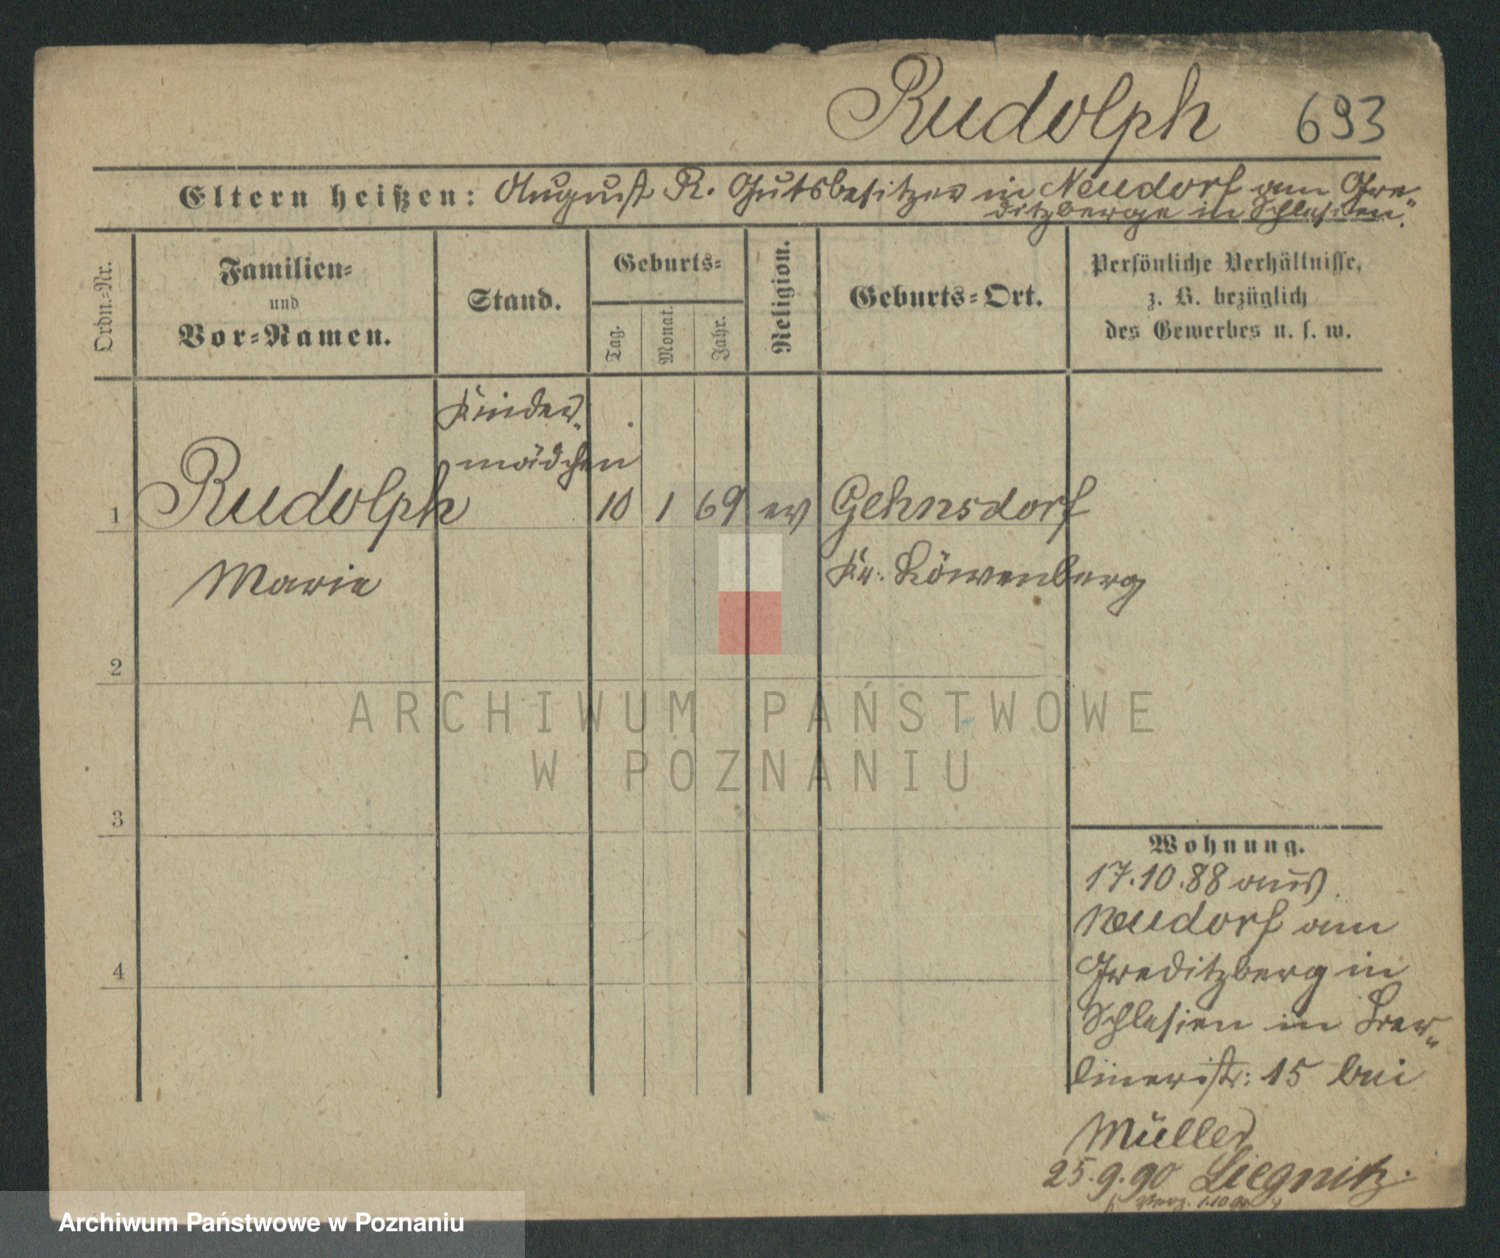 Rudolph 693
Eltern heißen: August R. Gutsbesitzer in Neudorf am Gre-
ditzberge in Schlesien.
Ordn.-Nr.
Familien-
und
Vor-Namen.
Stand.
Geburts-
Tag.
Monat.
Jahr.
Religion.
Geburts-Ort.
Persönliche Verhältnisse,
z. B. bezüglich
des Gewerbes u. s. w.
Kinder-
mädchen
1 Rudolph 10 1 69 ev Gehnsdorf
Marie Kr. Löwenberg
2
3
4
Wohnung.
17.10.88 aus
Neudorf am
Greditzberg in
Schlesien in Ber-
linerstr: 15 bei
Müller
25.9.90 Liegnitz.
ARCHIWUM PAŃSTWOWE
W POZNANIU
Archiwum Państwowe w Poznaniu